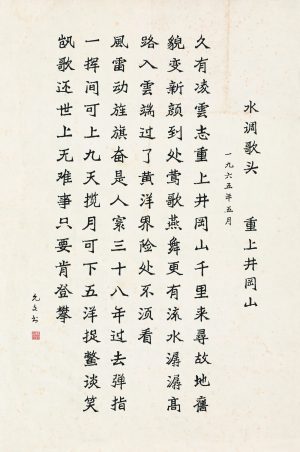 水调歌头 重上井岡山
一九六五年五月
久有凌雲志重上井岡山千里来尋故地舊
貌变新颜到处莺歌燕舞更有流水潺潺高
路入雲端过了黄洋界险处不须看
風雷动旌旗奋是人寰三十八年过去弹指
一挥间可上九天揽月可下五洋捉鳖谈笑
凯歌还世上无难事只要肯登攀